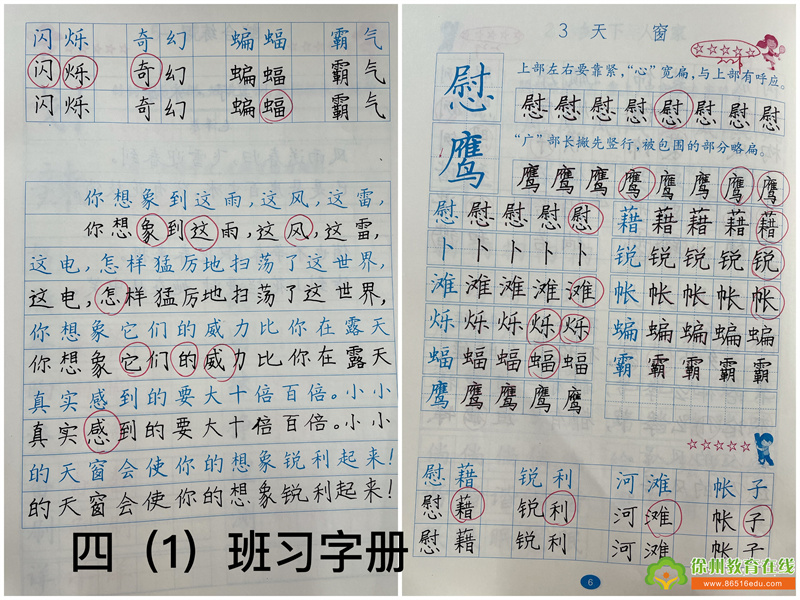 闪烁 奇幻 蝙蝠 霸气
闪烁 奇幻 蝙蝠 霸气
闪烁 奇幻 蝙蝠 霸气
你想象到这雨，这风，这雷，
你想象到这雨，这风，这雷，
这电，怎样猛厉地扫荡了这世界，
这电，怎样猛厉地扫荡了这世界，
你想象它们的威力比你在露天
你想象它们的威力比你在露天
真实感到的要大十倍百倍。小小
真实感到的要大十倍百倍。小小
的天窗会使你的想象锐利起来！
的天窗会使你的想象锐利起来！
四（1）班习字册
3 天 窗
慰
上部左右要靠紧，“心”宽扁，与上部有呼应。
慰慰慰慰慰慰慰慰
鹰
“广”部长撇先竖行，被包围的部分略扁。
鹰鹰鹰鹰鹰鹰鹰鹰
慰慰慰慰慰 藉藉藉藉藉
卜卜卜卜卜 锐锐锐锐锐
滩滩滩滩滩 帐帐帐帐帐
烁烁烁烁烁 蝙蝙蝙蝙蝙
蝠蝠蝠蝠蝠 霸霸霸霸霸
鹰鹰鹰鹰鹰
慰藉 锐利 河滩 帐子
慰藉 锐利 河滩 帐子
慰藉 锐利 河滩 帐子
6
徐州教育在线
www.86516edu.com